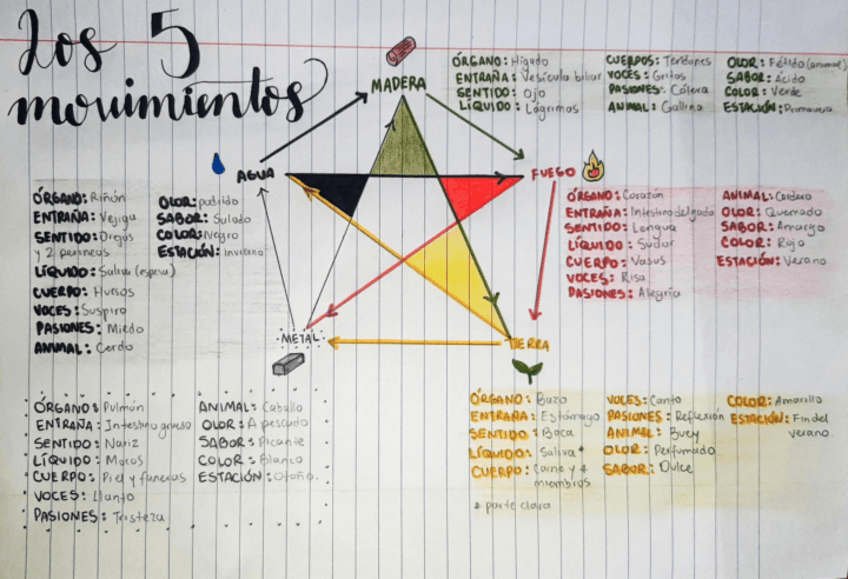 Los 5
movimientos
MADERA
ÓRGANO: Hígado
ENTRAÑA: Vesícula biliar
SENTIDO: Ojo
LÍQUIDO: Lágrimas
CUERPOS: Tendones
VOCES: Gritos
PASIONES: Cólera
ANIMAL: Gallina
OLOR: Fétido (animal)
SABOR: Ácido
COLOR: Verde
ESTACIÓN: Primavera
AGUA
ÓRGANO: Riñón
ENTRAÑA: Vejiga
SENTIDO: Orejas
y 2 perineos
LÍQUIDO: Saliva (espesa)
CUERPO: Huesos
VOCES: Suspiro
PASIONES: Miedo
ANIMAL: Cerdo
OLOR: podrido
SABOR: Salado
COLOR: Negro
ESTACIÓN: invierno
FUEGO
ÓRGANO: Corazón
ENTRAÑA: Intestino delgado
SENTIDO: Lengua
LÍQUIDO: Sudor
CUERPO: Vasos
VOCES: Risa
PASIONES: Alegría
ANIMAL: Cordero
OLOR: Quemado
SABOR: Amargo
COLOR: Rojo
ESTACIÓN: Verano
METAL
ÓRGANO: Pulmón
ENTRAÑA: Intestino grueso
SENTIDO: Nariz
LÍQUIDO: Mocos
CUERPO: Piel y
VOCES: Llanto
PASIONES: Tristeza
ANIMAL: Caballo
OLOR: A pescado
SABOR: Picante
COLOR: Blanco
ESTACIÓN: Otoño.
TIERRA
ÓRGANO: Bazo
ENTRAÑA: Estómago
SENTIDO: Boca
LÍQUIDO: Saliva*
CUERPO: Carne y 4
miembros
* parte clara
VOCES: Canto
PASIONES: Reflexión
ANIMAL: Buey
OLOR: Perfumado
SABOR: Dulce
COLOR: Amarillo
ESTACIÓN: Fin del
verano.